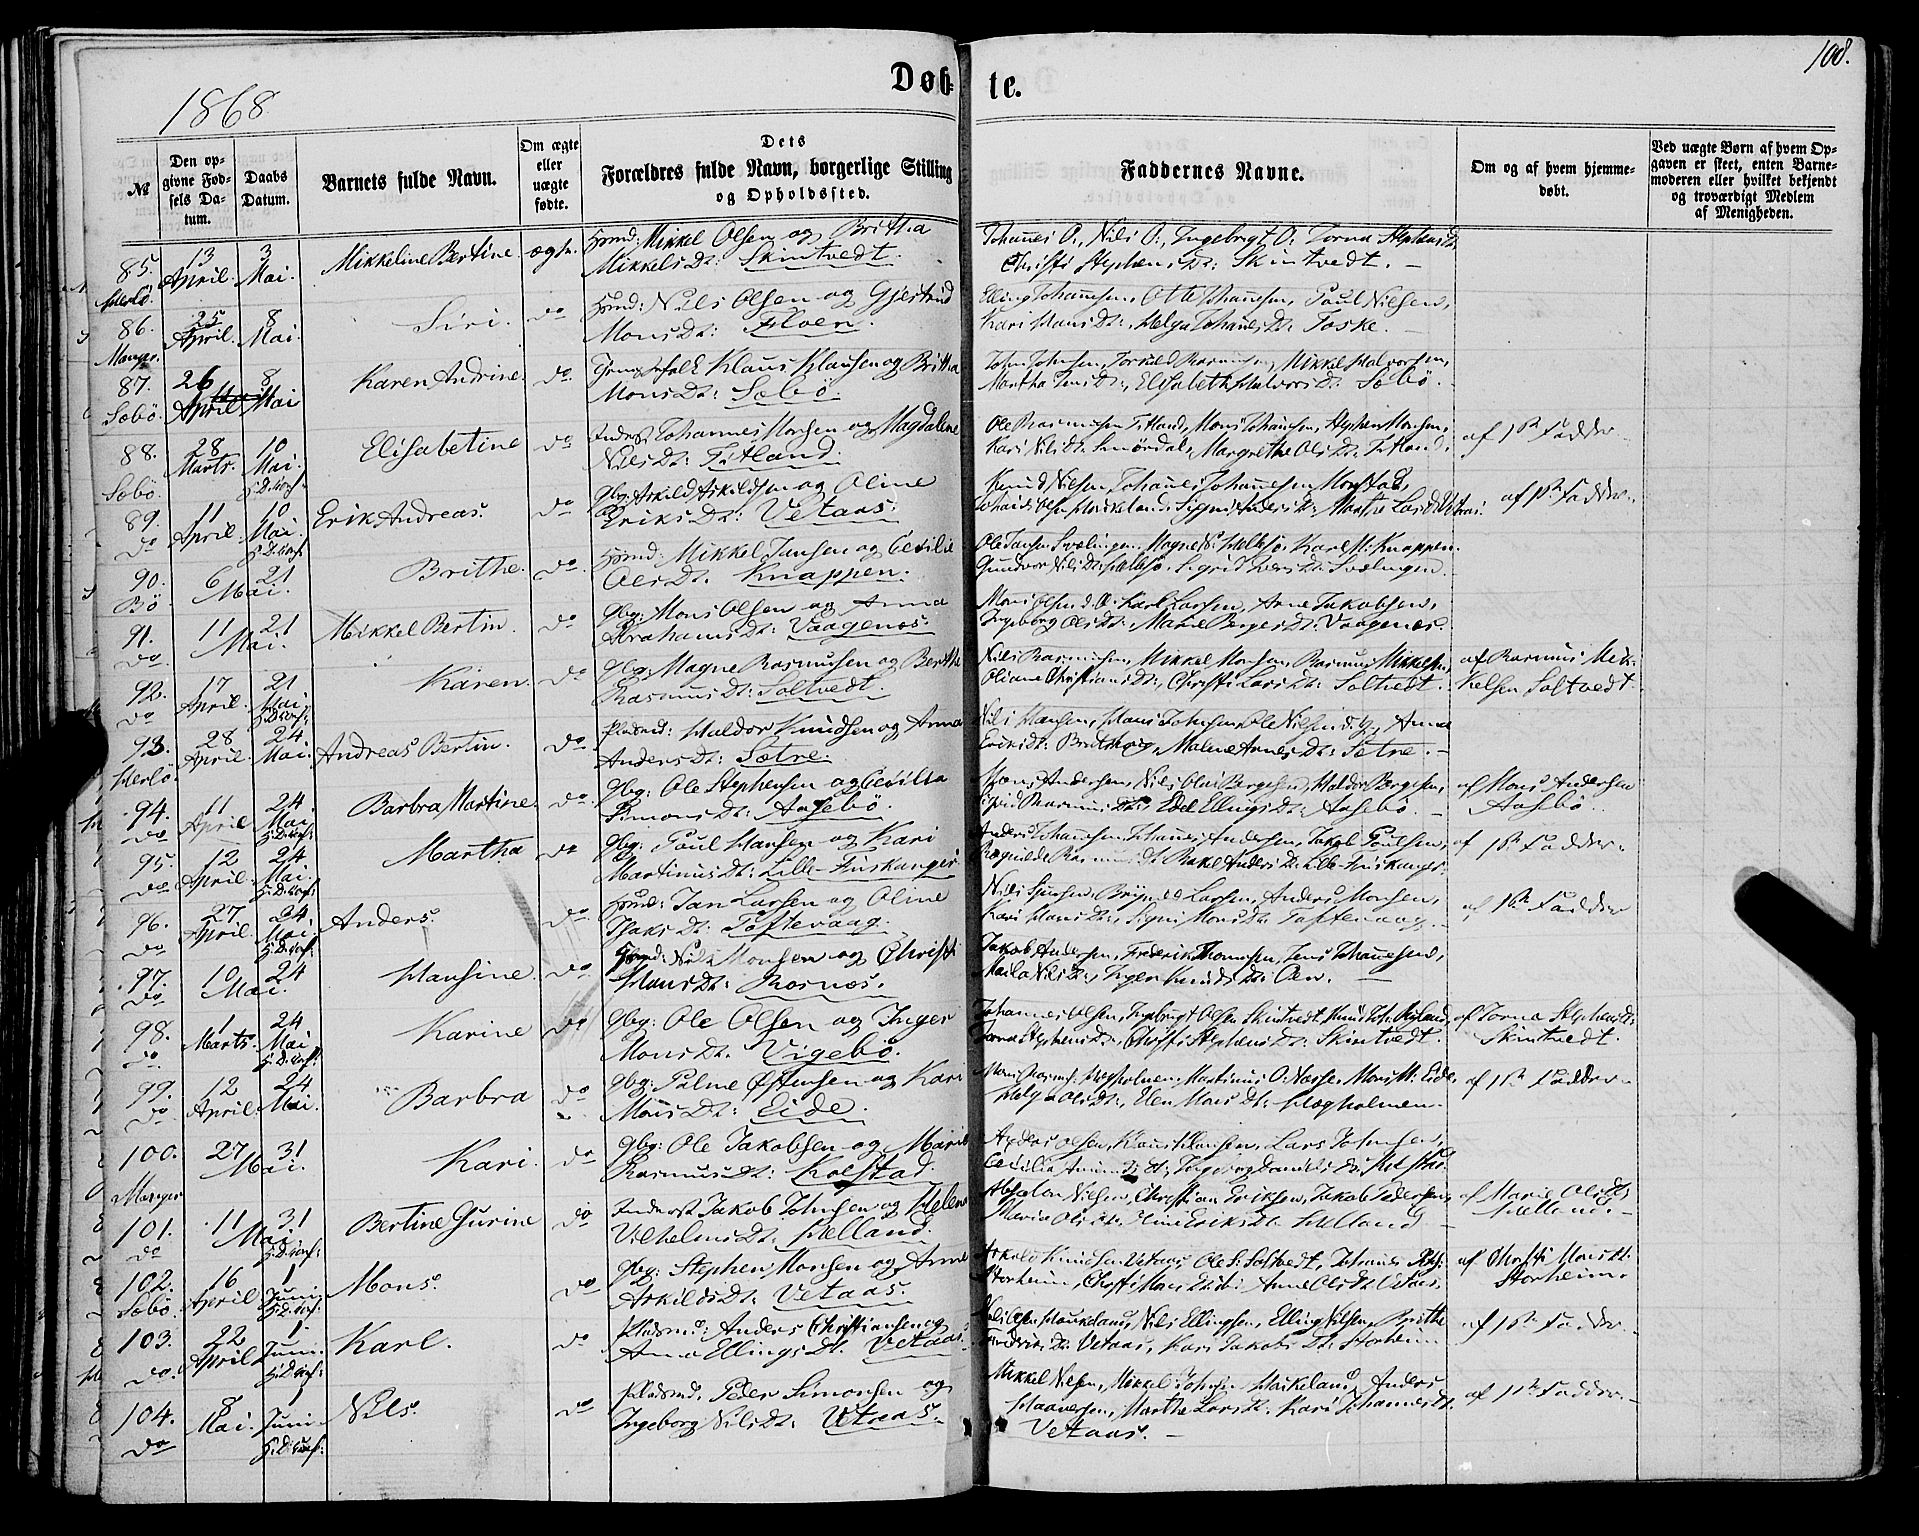 108.
Døb-
te.
1868
№
Den op-
givne Fød-
sels Da-
tum.
Daabs
Datum.
Barnets fulde Navn.
Om ægte
eller
uægte
fødte.
Dets
Forældres fulde Navn, borgerlige Stilling
og Opholdssted.
Faddernes Navne.
Om og af hvem hjemme-
døbt.
Ved uægte Børn af hvem Op-
gaven er skeet, enten Barne-
moderen eller hvilket bekjendt
og troværdigt Medlem
af Menigheden.
85. 13 April. 3 Mai. Mikkeline Bertine ægte. Mikkel Olsen og Brittha
Herlö. Mikkels Dt: Skintvedt.
Johannes O., Nils O., Ingebrigt O. Torna Stephens Dt.
Christi Stephens Dt: Skintvedt. —
86. 25 April. 8 Mai. Siri. do Nils Olsen og Gjertrud
Manger. Mons Dt: Floen.
Elling Johannesen, Otte Johannesen, Poul Nilsen,
Kari Mons Dt:, Helga Johannes Dt: Toske. —
87. 26 April 8 Mai Karen Andrine. do Klaus Klausen og Brittha
Sæbö. Mons Dt: Sæbö.
Mikkel Halvorsen,
Martha Jens Dt:, Elisabeth Halvors Dt: Sæbö.
88. 28 Marts. 10 Mai. Elisabetine do Inderst Johannes Monsen og Magdalene
Sæbö. Nils Dt: Titland.
Ole Rasmussen Titland, Mons Johannesen, Stephen Monsen,
Kari Nils Dt: Smördal, Margrethe Ols Dt: Titland.
af 1ste Fadder.
89. 11 April. 10 Mai. Erik Andreas. do Gbg: Arkild Arkildsen og Oline
do Eriks Dt: Vetaas.
Knud Nilsen, Johannes Johannesen Monstad,
Marthe Lars Dt Vetaas.
af 1ste Fadder.
90. 6 21 Mai. Brithe. do Mikkel Jansen og Cecilie
Bö. Ols Dt. Knappen.
Ole Jansen Svælingen, Magne N: Helesö, Karl M: Knappen.
Gundvor Nils Dt: Helesö, Sigrid Dt: Svælingen.
91. 11 21 Mai. Mikkel Bertin. do Gbg: Mons Olsen og Anna
do. Abrahams Dt: Vaagenæs
Mons Olsen d. Æ: Karl Larsen, Arne Jakobsen,
Ingeborg Ols Dt: Marie Berges Dt: Vaagenæs.
92. 17 April. 21 Mai. Karen. do Gbg: Magne Rasmusen og Berthe
do Rasmus Dt: Soltvedt.
Nils Rasmusen, Mikkel Monsen, Rasmus Mikkelsen,
Oliana Christians Dt:, Christi Lars Dt: Soltvedt.
af Rasmus Mik-
kelsen Soltvedt.
93. 28 April. 24 Mai. Andreas Bertin. do Pladsmd: Haldor Knudsen og Anna
Herlö. Anders Dt: Sætre.
Nils Hansen, Hans Johnsen, Ole Nilsen d. y., Anna
Eriks Dt: Malene Arnes Dt: Sætre. —
94. 11 April 24 Mai. Barbra Martine. do. Gbg: Ole Stephensen og Cecilia
do Simons Dt: Aasebö.
Mons Andersen, Nils Olai Bergesen, Haldor Bergesen,
Sigrid Rasmus Dt: Edel Ellings Dt: Aasebö. —
af Mons Andersen
Aasebö.
95. 12 April. 24 Mai. Martha do Gbg: Poul Hansen og Kari
do. Martinus Dt: Lille-Huskanger
Anders Johannesen, Johannes Andersen, Jakob Poulsen,
Ragnilde Rasmus Dt. Rakel Anders Dt: Lille Huskanger.
af 1ste Fadder.
96. 27 April. 24 Mai. Anders. do Jan Larsen og Oline
do Isaks Dt: Toftevaag.
Nils Larsen, Anders Monsen,
Kari Hans Dt:, Signi Mons Dt: Toftevaag. —
af 1ste Fadder
97. 10 24 Mai. Hansine. do Nils Monsen og Christi
do Hans Dt: Rosnæs.
Jakob Andersen, Frederik Thomsen, Jens Johannesen,
Marta Nils Dt:, Inger Knuds Dt: Oen. —
98. 1 Marts. 24 Mai Karine do Gbg: Ole Olsen og Inger
do. Mons Dt: Vigebö.
Johannes Olsen, Ingebrigt Olsen Skintvedt,
Torna Stephens Dt:, Christi Stephens Dt: Skintvedt.
af Torna Stephens Dt:
Skintvedt.
99. 12 April. 24 Mai. Barbra do Gbg: Palme Östensen og Kari
do Mons Dt: Eide.
Hægholmen, Martinus O: Mons M: Eide
Helga Ols Dt:, Elen Mons Dt: Hægholmen.
af 1ste Fadder.
100. 27 31 Mai. Kari. do Gbg: Ole Jakobsen og Marie
Manger Rasmus Dt: Kolstad.
Anders Olsen, Klaus Hansen, Lars Johnsen,
Cecilia Dt: Ingeborg Daniels Dt: Kolstad.
101. 11 31 Mai. Bertine Gurine do Inderst Jakob Johnsen og Helene
do Vilhelms Dt: Helland.
Absalon Nilsen, Christian Eriksen, Jakob Pedersen,
Maria Ols Dt: Eriks Dt: Helland. —
af Marie Ols Dt:
Helland. —
102. 16 April 1 Juni Mons. do Gbg: Stephen Monsen og Anne
Sæbö. Arkilds Dt: Vetaas.
Arkild Knudsen Vetaas Ole S: Soltvedt, Johannes
Storheim, Christi Mons Dt: Anne Ols Dt Vetaas.
af Christi Mons Dt:
Storheim.
103. 22 April 1 Juni. Karl. do Pladsmd: Anders Christiansen og
do. Anna Ellings Dt. Vetaas.
Nils Ellingsen, Elling Nilsen, Brithe
Vetaas, Kari Jakobs Dt: Storheim
af 1ste Fadder
104. 8 Mai. 1 Juni Nils. do Pladsmd. Peder Simonsen og
do Ingeborg Nils Dt: Vetaas.
Mikkel Nilsen, Mikkel Johnsen Anders
Marthe Lars Dt: Kari Johannes Dt:
Vetaas. —
af 1ste Fadder —